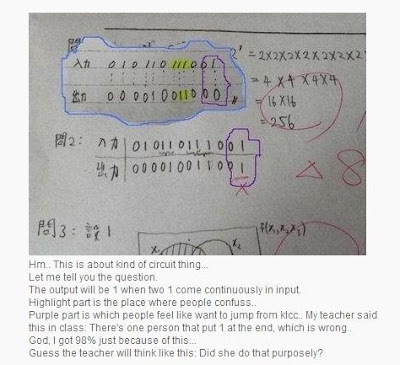 = 2×2×2×2×2×2×2
入力 0 1 0 1 1 0 1 1 1 0 0 1
= 4 × 4 × 4×4
出力 0 0 0 0 1 0 0 1 1 0 0 0
= 16×16
= 256
問2: 入力 0 1 0 1 1 0 1 1 1 0 0 1
出力 0 0 0 0 1 0 0 1 1 0 0 1
8
問3:
x₂
Hm.. This is about kind of circuit thing...
Let me tell you the question.
The output will be 1 when two 1 come continuously in input.
Highlight part is the place where people confuss..
Purple part is which people feel like want to jump from klcc.. My teacher said
this in class: There's one person that put 1 at the end, which is wrong..
God, I got 98% just because of this...
Guess the teacher will think like this: Did she do that purposely?